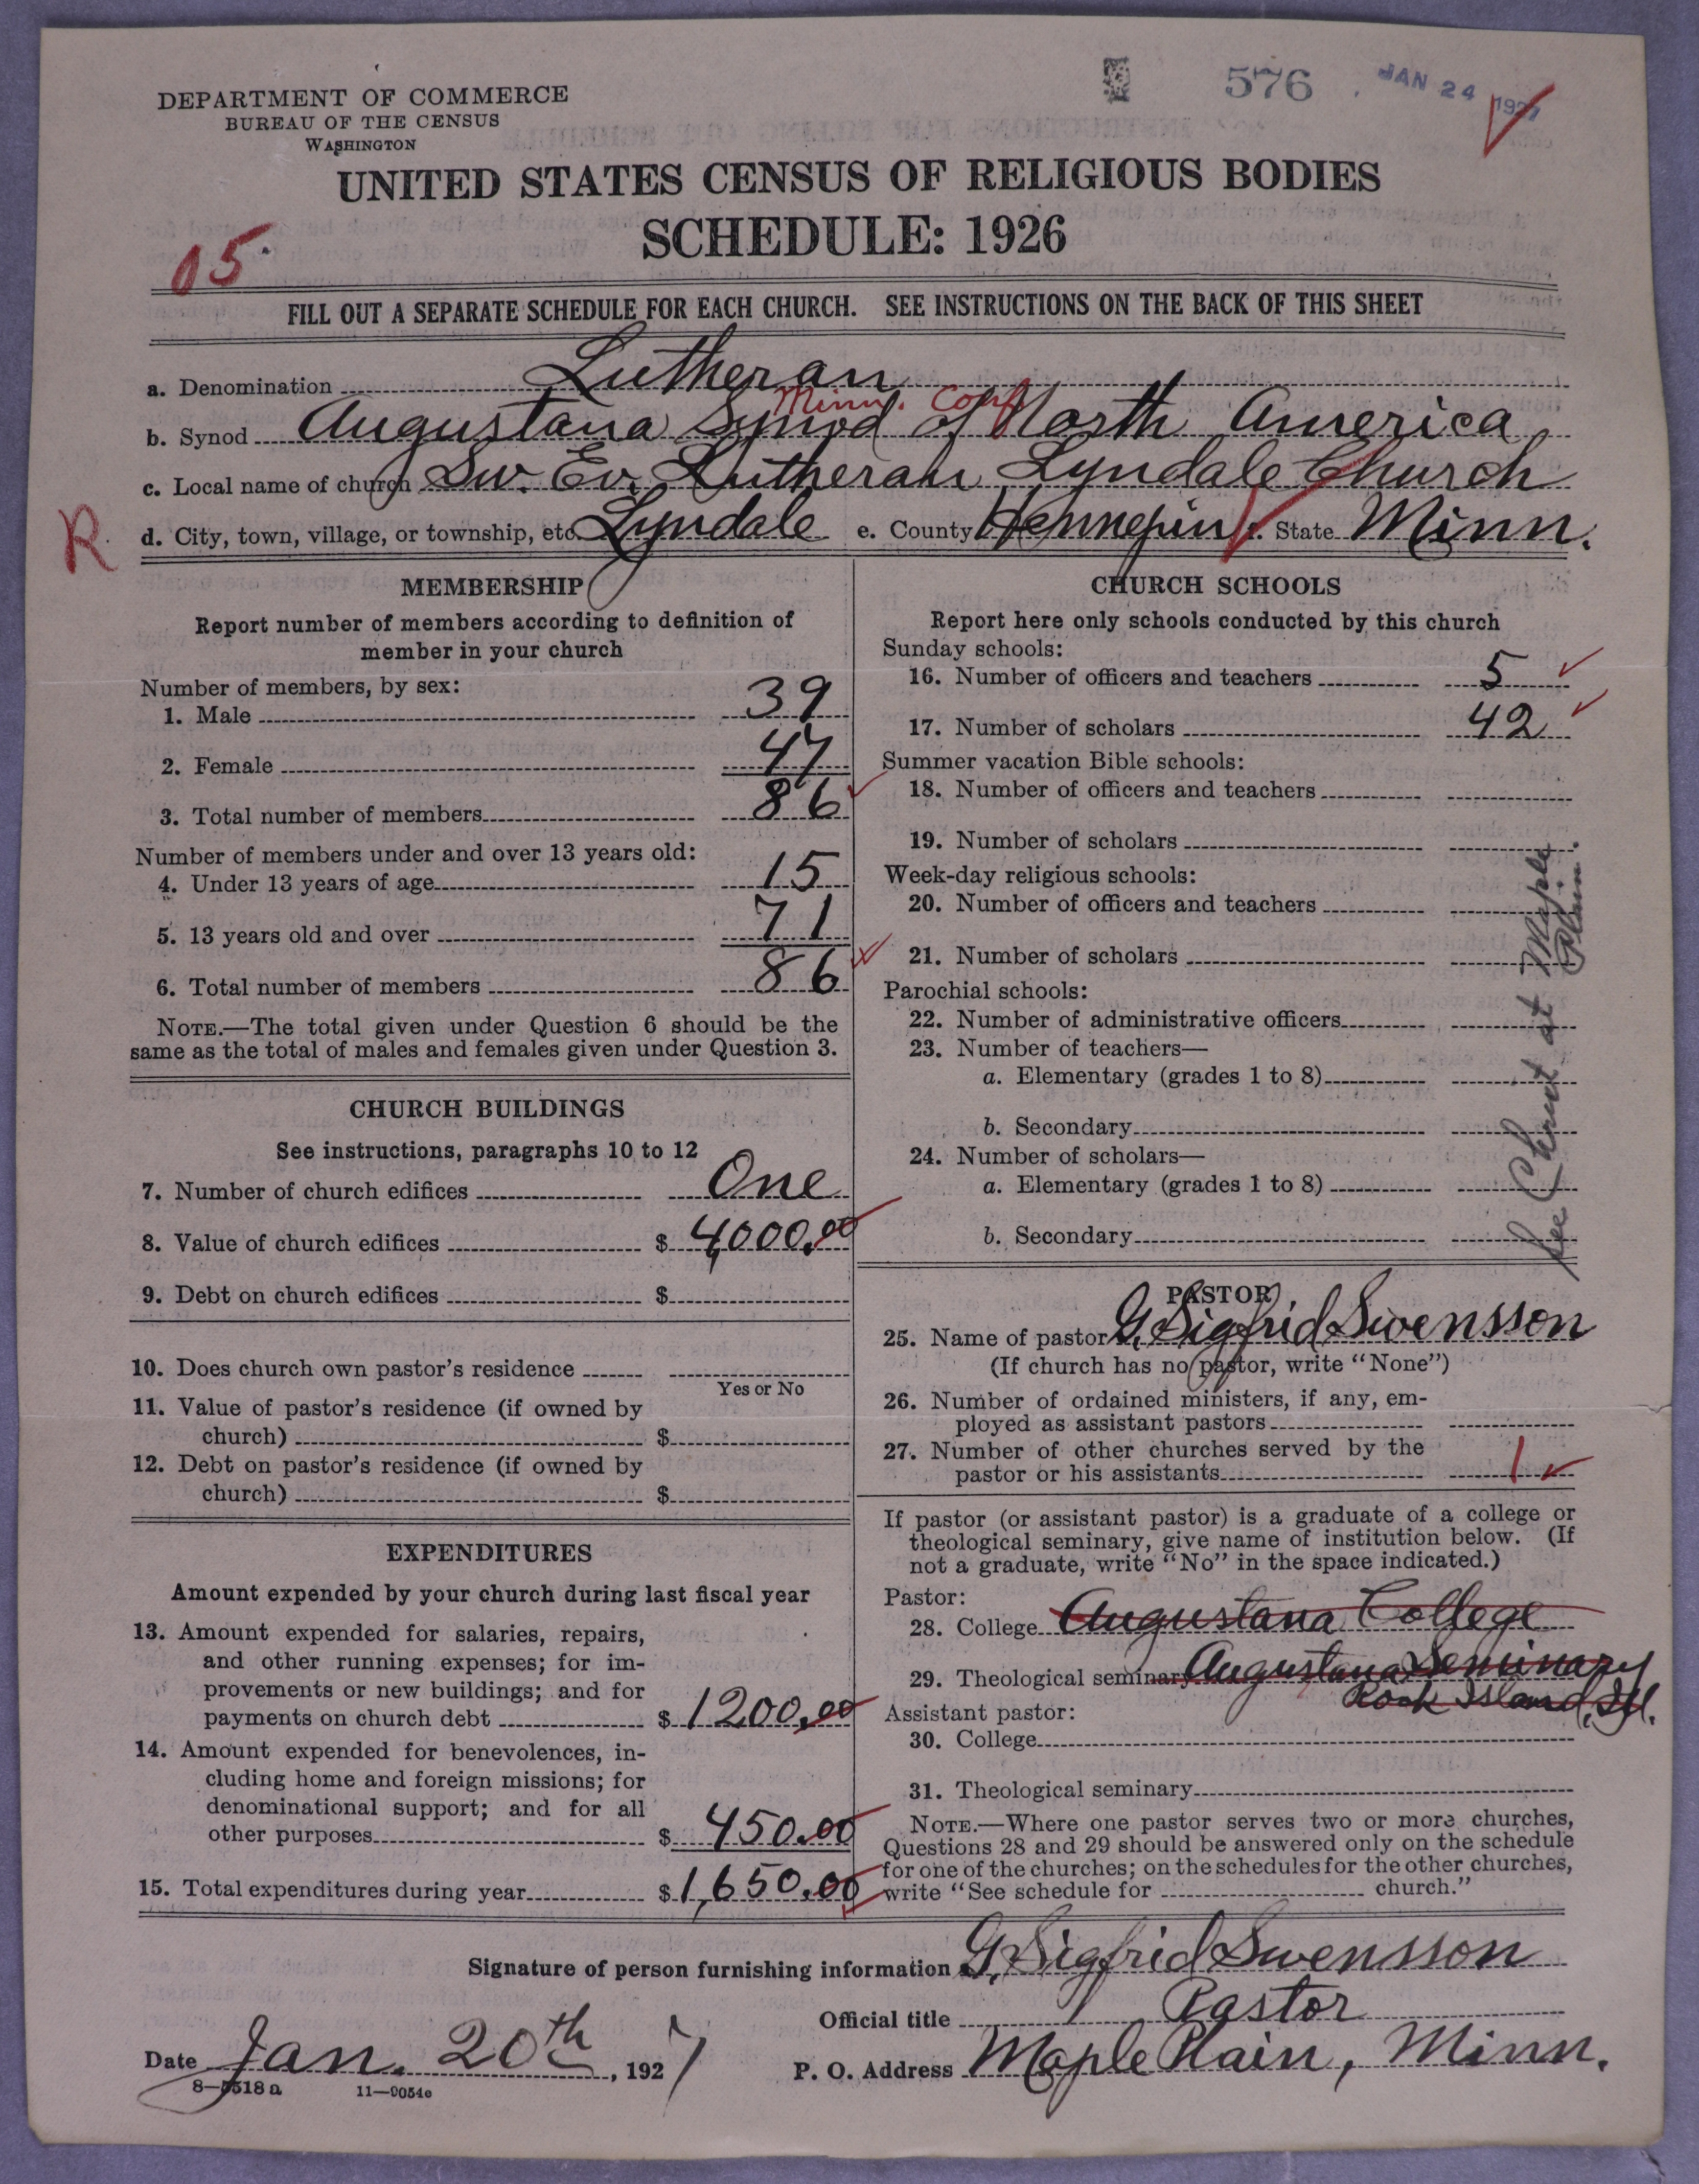 576 JAN 24 1927
DEPARTMENT OF COMMERCE
BUREAU OF THE CENSUS
WASHINGTON
UNITED STATES CENSUS OF RELIGIOUS BODIES
SCHEDULE: 1926
05
FILL OUT A SEPARATE SCHEDULE FOR EACH CHURCH. SEE INSTRUCTIONS ON THE BACK OF THIS SHEET
a. Denomination Lutheran
Minn. Conf
b. Synod Augustana Synod of North America
c. Local name of church Sw. Ev. Lutheran Lyndale Church
R
d. City, town, village, or township, etc. Lyndale e. County Hennepin f. State Minn.
MEMBERSHIP
Report number of members according to definition of
member in your church
Number of members, by sex:
1. Male 39
2. Female 47
3. Total number of members 86
Number of members under and over 13 years old:
4. Under 13 years of age 15
5. 13 years old and over 71
6. Total number of members 86
NOTE.—The total given under Question 6 should be the
same as the total of males and females given under Question 3.
CHURCH BUILDINGS
See instructions, paragraphs 10 to 12
7. Number of church edifices One
8. Value of church edifices $ 4,000.00
9. Debt on church edifices $
10. Does church own pastor's residence
Yes or No
11. Value of pastor's residence (if owned by
church) $
12. Debt on pastor's residence (if owned by
church) $
EXPENDITURES
Amount expended by your church during last fiscal year
13. Amount expended for salaries, repairs,
and other running expenses; for im-
provements or new buildings; and for
payments on church debt $ 1200.00
14. Amount expended for benevolences, in-
cluding home and foreign missions; for
denominational support; and for all
other purposes $ 450.00
15. Total expenditures during year $ 1,650.00
CHURCH SCHOOLS
Report here only schools conducted by this church
Sunday schools:
16. Number of officers and teachers 5
17. Number of scholars 42
Summer vacation Bible schools:
18. Number of officers and teachers
19. Number of scholars
Week-day religious schools:
20. Number of officers and teachers
21. Number of scholars
Parochial schools:
22. Number of administrative officers
23. Number of teachers—
a. Elementary (grades 1 to 8)
b. Secondary
24. Number of scholars—
a. Elementary (grades 1 to 8)
b. Secondary
See Christ at Maple
Plain.
PASTOR
25. Name of pastor G. Sigfrid Swensson
(If church has no pastor, write "None")
26. Number of ordained ministers, if any, em-
ployed as assistant pastors
27. Number of other churches served by the
pastor or his assistants 1
If pastor (or assistant pastor) is a graduate of a college or
theological seminary, give name of institution below. (If
not a graduate, write "No" in the space indicated.)
Pastor:
28. College Augustana College
29. Theological seminary Augustana Seminary
Rock Island, Ill.
Assistant pastor:
30. College
31. Theological seminary
NOTE.—Where one pastor serves two or more churches,
Questions 28 and 29 should be answered only on the schedule
for one of the churches; on the schedules for the other churches,
write "See schedule for church."
Signature of person furnishing information G. Sigfrid Swensson
Official title Pastor
Date Jan. 20th, 1927 P. O. Address Maple Plain, Minn.
8—5518a 11—9054c